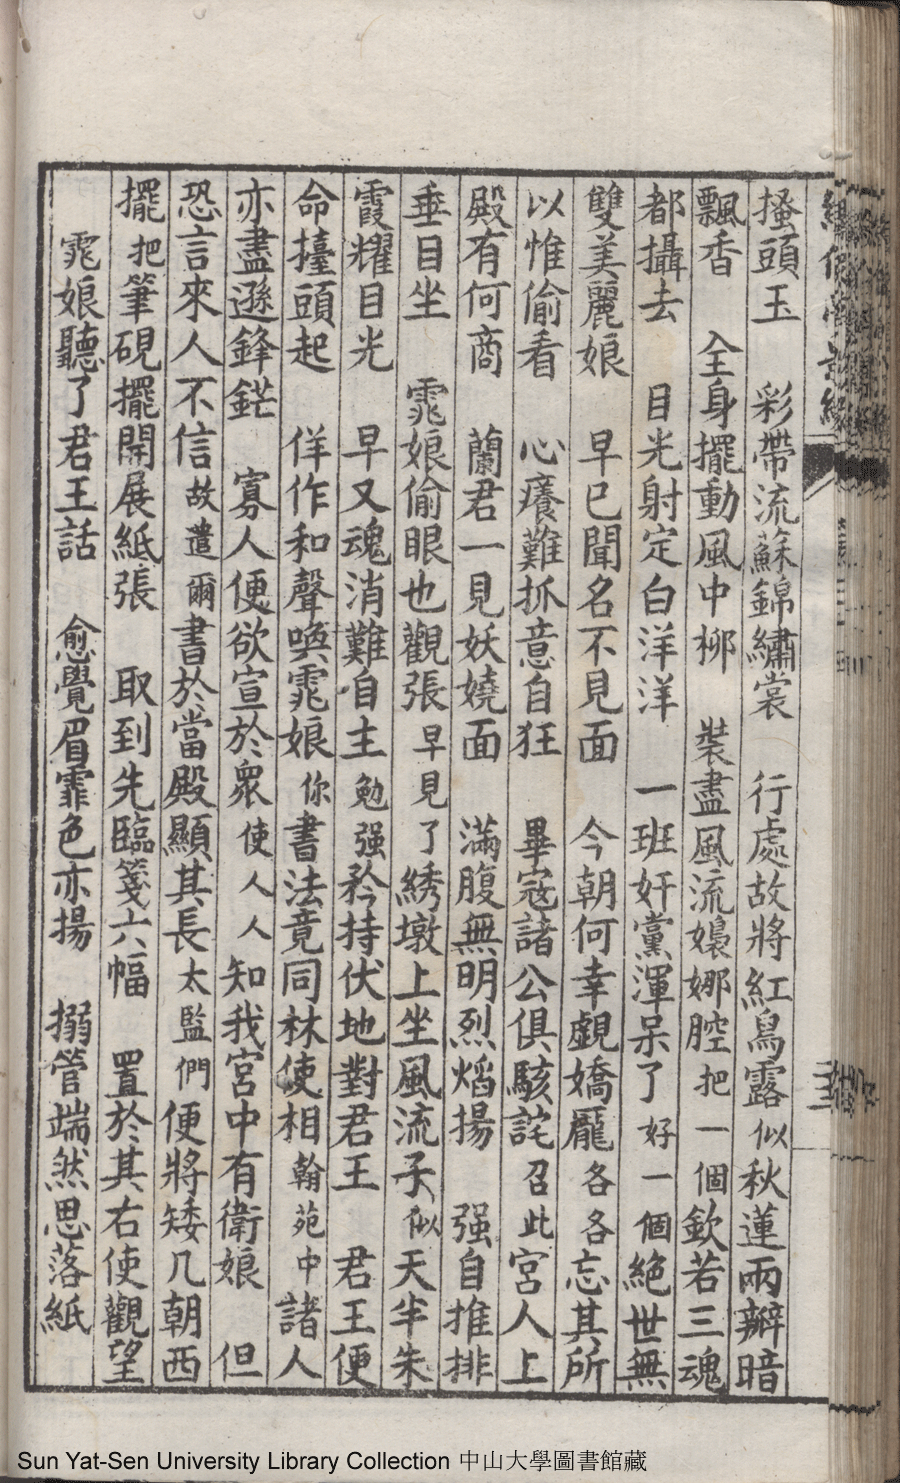 搔頭玉　彩帶流蘇錦繡裳　行處故將紅舄露似秋蓮兩瓣暗
飄香　全身擺動風中柳　裝盡風流嬝娜腔把一個欽若三魂
都攝去　目光射定白洋洋　一班奸黨渾呆了好一個絕世無
雙美麗娘　早已聞名不見面　今朝何幸覷嬌龐各各忘其所
以惟偷看　心癢難抓意自狂　畢寇諸公俱駭詫召此宮人上
殿有何商　蘭君一見妖嬈面　滿腹無明烈熖揚　强自推排
垂目坐　霓娘偷眼也觀張早見了綉墩上坐風流子似天半朱
霞耀目光　早又魂消難自主勉强矜持伏地對君王　君王便
命擡頭起　佯作和聲喚霓娘你書法竟同林使相翰苑中諸人
亦盡遜鋒鋩　寡人便欲宣於衆使人人知我宮中有衛娘　但
恐言來人不信故遣爾書於當殿顯其長太監們便將矮几朝西
擺把筆硯擺開展紙張　取到先臨箋六幅　置於其右使觀望
霓娘聽了君王話　愈覺眉霏色亦揚　搦管端然思落紙
Sun Yat-Sen University Library Collection 中山大學圖書館藏